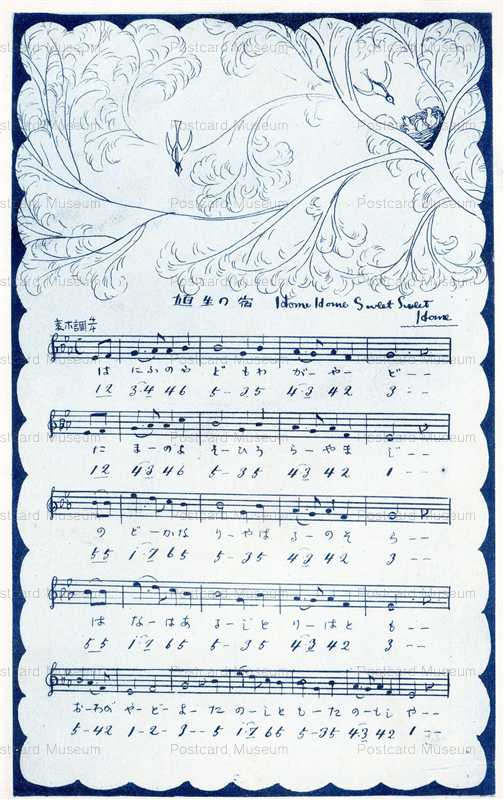 埴生の宿 Home Home Sweet Sweet
Home
は にふのや どもわ が-や- ど--
12 34 46 5-35 4342 3--
に ま-のよ そ-ひろ ら-やま じ--
12 43 46 5-35 4342 1--
の ど-かな り-やは る-のそ ら--
55 1765 5-35 4342 3--
は な-はあ る-じと り-はと も--
55 1765 5-35 4342 3--
お-わが や-ど-よ-た の-しとも-た の-もし や--
5-42 1-2- 3--5 1765 5-35 4342 1--
Postcard Museum